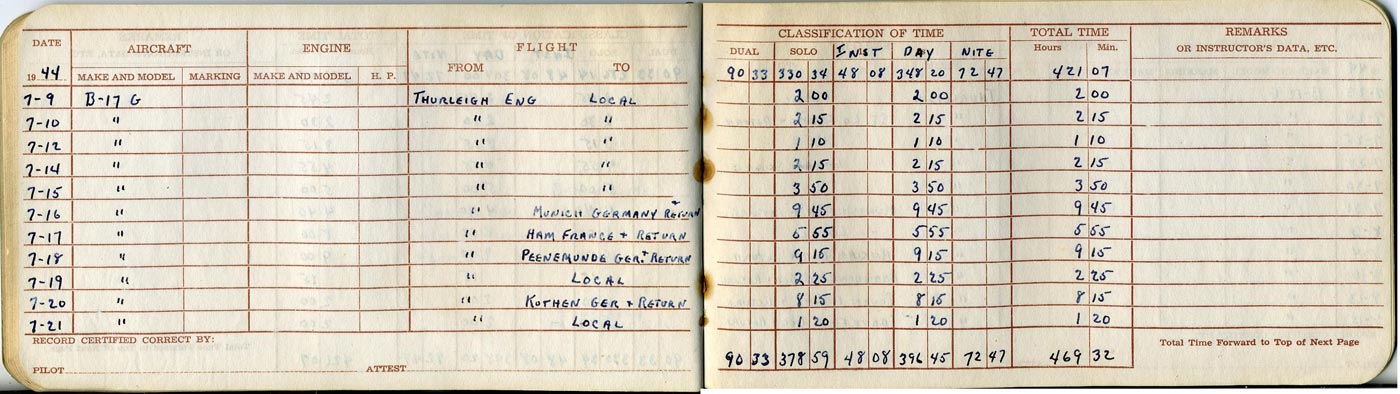 DATE AIRCRAFT ENGINE FLIGHT CLASSIFICATION OF TIME TOTAL TIME REMARKS
FROM TO DUAL SOLO INST DAY NITE Hours Min. OR INSTRUCTOR'S DATA, ETC.
1944 MAKE AND MODEL MARKING MAKE AND MODEL H. P. 90 33 330 34 48 08 348 20 72 47 421 07
7-9 B-17 G THURLEIGH ENG LOCAL 2 00 2 00 2 00
7-10 " " " 2 15 2 15 2 15
7-12 " " " 1 10 1 10 1 10
7-14 " " " 2 15 2 15 2 15
7-15 " " " 3 50 3 50 3 50
7-16 " " MUNICH GERMANY + RETURN 9 45 9 45 9 45
7-17 " " HAM FRANCE + RETURN 5 55 5 55 5 55
7-18 " " PEENEMUNDE GER. + RETURN 9 15 9 15 9 15
7-19 " LOCAL 2 25 2 25 2 25
7-20 " " KOTHEN GER + RETURN 8 15 8 15 8 15
7-21 " " LOCAL 1 20 1 20 1 20
RECORD CERTIFIED CORRECT BY: Total Time Forward to Top of Next Page
90 33 378 59 48 08 396 45 72 47 469 32
PILOT ATTEST